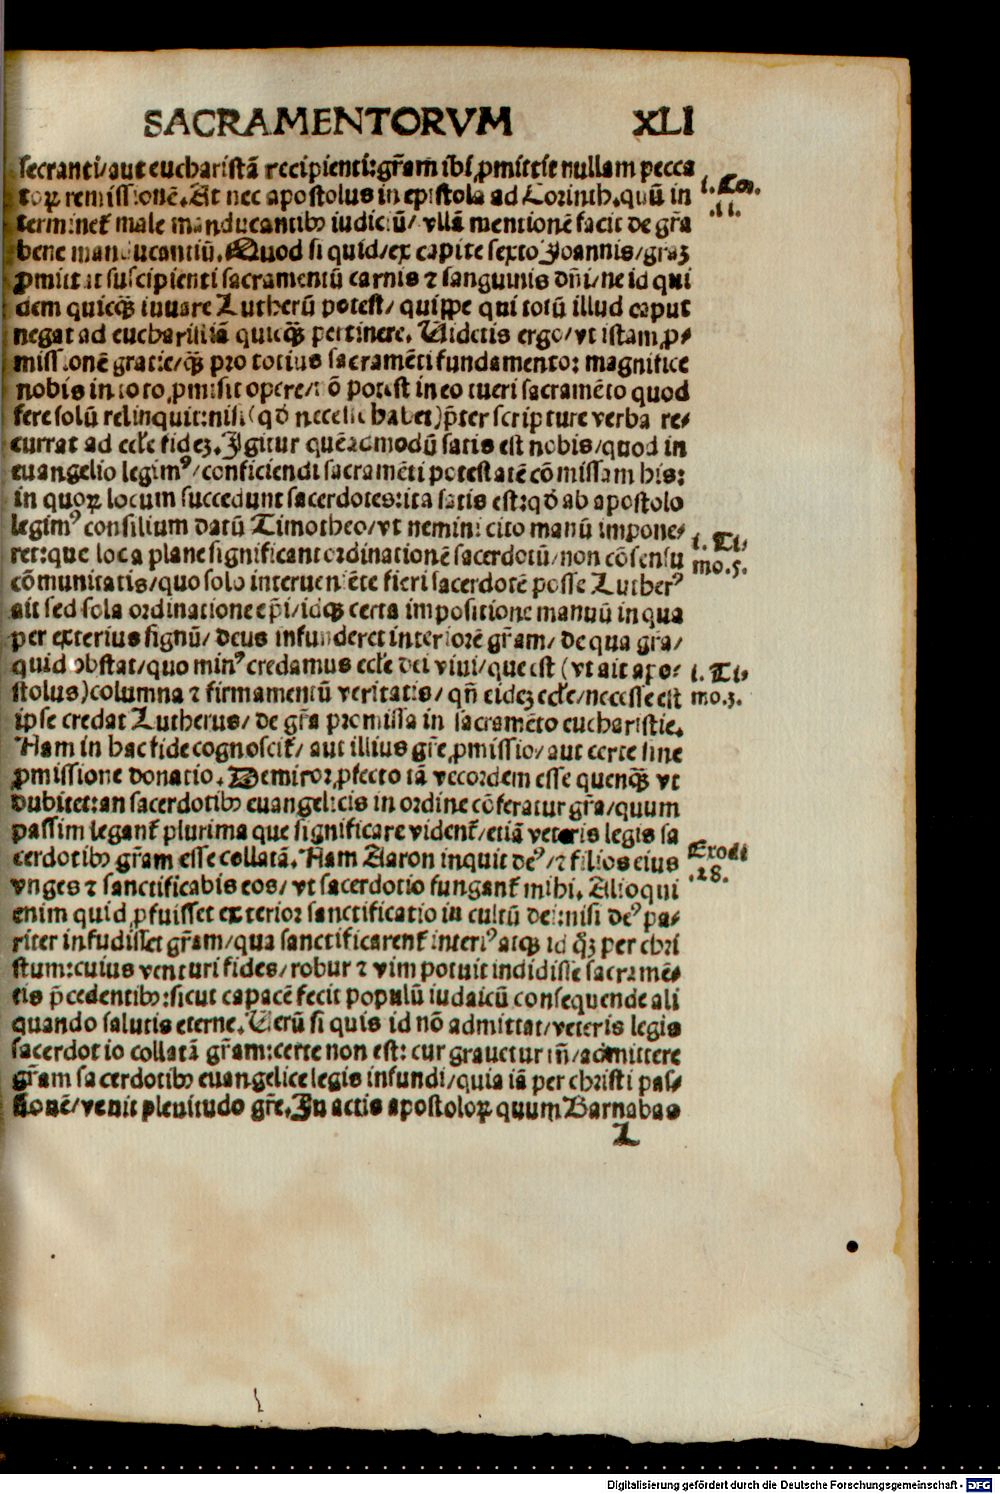 SACRAMENTORVM XLI
secranti/aut eucharistā recipienti:gr̃am ibi ꝓmittit nullam pecca
toꝝ remissionē. At nec apostolus in epistola ad Corinth. quū in i. Cor.
terminet᷑ male manducantibꝰ iudiciū/ vllā mentionē facit de gr̃a .11.
bene manducantiū. Quod si quid/ex capite sexto Joannis/graꝫ
ꝓmittat suscipienti sacramentū carnis ⁊ sanguinis dñi/ne id qui
dem quicꝗ̃ iuuare Lutherū potest/ quippe qui totū illud caput
negat ad eucharistiā quicꝗ̃ pertinere. Videtis ergo/vt istam ꝓ-
missionē gratie/ꝗ̃ pro totius sacramēti fundamento: magnifice
nobis in toto ꝓmisit opere/ nō potest in eo tueri sacramēto quod
fere solū relinquit:nisi(qđ necesse habet)p̃ter scripture verba re-
currat ad eccl̃e fideꝫ. Igitur quēadmodū satis est nobis/quod in
euangelio legimꝰ/conficiendi sacramēti potestatē cōmissam his:
in quoꝝ locum succedunt sacerdotes:ita satis est:qđ ab apostolo
legimꝰ consilium datū Timotheo/vt nemini cito manū impone-
ret:que loca plane significant ordinationē sacerdotū/non cōsensu i. Ti-
cōmunitatis/quo solo interueniēte fieri sacerdotē posse Lutherꝰ mo.5.
ait sed sola ordinatione ep̃i/idꝗ certa impositione manuū in qua
per exterius signū/ deus infunderet interiorē gr̃am/ de qua gra/
quid obstat/quo minꝰ credamus eccl̃e dei viui/que est (vt ait apo- i. Ti-
stolus)columna ⁊ firmamentū veritatis/ qñ eideꝫ eccl̃e/necesse est mo.3.
ipse credat Lutherus/ de gr̃a promissa in sacramēto eucharistie.
Nam in hac fide cognoscit᷑/ aut illius gr̃e ꝓmissio/ aut certe sine
ꝓmissione donatio. Demiror ꝓfecto tā vecordem esse quenꝗ̃ vt
dubitet:an sacerdotibꝰ euangelicis in ordine cōferatur gr̃a/quum
passim legant᷑ plurima que significare vident᷑/etiā veteris legis sa
cerdotibꝰ gr̃am esse collatā. Nam Aaron inquit deꝰ/⁊ filios eius Exodi
vnges ⁊ sanctificabis eos/ vt sacerdotio fungant᷑ mihi. Alioqui .28.
enim quid ꝓfuisset exterior sanctificatio in cultū dei:nisi deꝰ pa-
riter infudisset gr̃am/qua sanctificarent᷑ interiꝰ atꝗ id ꝗ̃ꝫ per chri
stum:cuius venturi fides/robur ⁊ vim potuit indidisse sacramē-
tis p̃cedentibꝰ:sicut capacē fecit populū iudaicū consequende ali
quando salutis eterne. Verū si quis id nō admittat/veteris legis
sacerdotio collatā gr̃am:certe non est: cur grauetur tñ/admittere
gr̃am sacerdotibꝰ euangelice legis infundi/quia iā per christi pas-
sionē/venit plenitudo gr̃e. In actis apostoloꝝ quum Barnabas
L
Digitalisierung gefördert durch die Deutsche Forschungsgemeinschaft - DFG